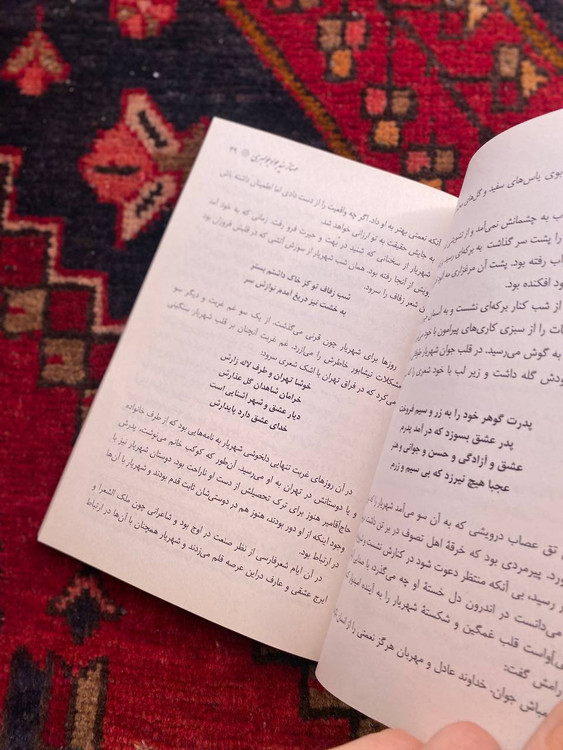 بوی یاس‌های سفید و گل‌های
به چشمانش نمی‌آمد و از
را پشت سر گذاشت به برکه‌ای
رفته بود. پشت آن مرغزاری
افکنده بود.
از شب کنار برکه‌ای نشست و به
را از سبزی کاری‌های پیرامون با خود
به گوش می‌رسید. در قلب جوان شهریار
گله داشت و زیر لب با خود شعری را
پدرت گوهر خود را به زر و سیم فروخت
پدر عشق بسوزد که در آمد پدرم
عشق و آزادگی و حسن و جوانی و هنر
عجبا هیچ نیرزد که بی سیم و زرم
تق عصای درویشی که به آن سو می‌آمد شهریار را
پیرمردی بود که خرقهٔ اهل تصوف در بر
رسیده بی آنکه منتظر دعوت شود در کنارش نشست
می‌دانست در اندرون دل خستهٔ او چه می‌گذرد، با
قلب غمگین و شکستهٔ شهریار را به آینده
گفت:
جوان، خداوند عادل و مهربان هرگز نعمتی را از
آنکه نعمتی بهتر به او داد. اگر چه واقعیت را از دست دادی اما اطمینان داشته باش
به جایش حقیقت به تو ارزانی خواهد شد.
شهریار از سخنانی که شنید در بهت و حیرت فرو رفت. زمانی که به خود آمد
از آنجا رفته بود. همان شب شهریار از سوزش آتشی که در قلبش فروزان بود
شعر زفاف را سرود:
شب زفاف تو گر خاک داشتم بستر
به خشت نیز دریغ آمدم نوازش سر
روزها برای شهریار چون قرنی می‌گذشت. از یک سو غم غربت و دیگر سو
مشکلات نیشابور خاطرش را می‌آزرد. غم غربت آنچنان بر قلب شهریار سنگینی
می‌کرد که در فراق تهران با اشک شعری سرود:
خوشا تهران و طرف لاله زارش
خرامان شاهدان گل عذارش
دیار عشق و شهر آشنایی است
خدای عشق دارد پایدارش
در آن روزهای غربت تنهایی دلخوشی شهریار به نامه‌هایی بود که از طرف خانواده
و یا دوستانش در تهران به او می‌رسید. آن‌طور که کوکب خانم می‌نوشتند، پدرش
حاج‌آقامیر هنوز برای ترک تحصیلش از دست او ناراحت بود. دوستان شهریار نیز با
وجود اینکه از او دور بودند، هنوز هم در دوستی‌شان ثابت قدم بودند و شهریار با آن‌ها
در ارتباط بود.
در آن ایام شعرفارسی از نظر صنعت در اوج بود و شاعرانی چون ملک الشعرا و
ایرج عشقی و عارف دراین عرصه قلم می‌زدند و شهریار همچنان با آن‌ها در ارتباط